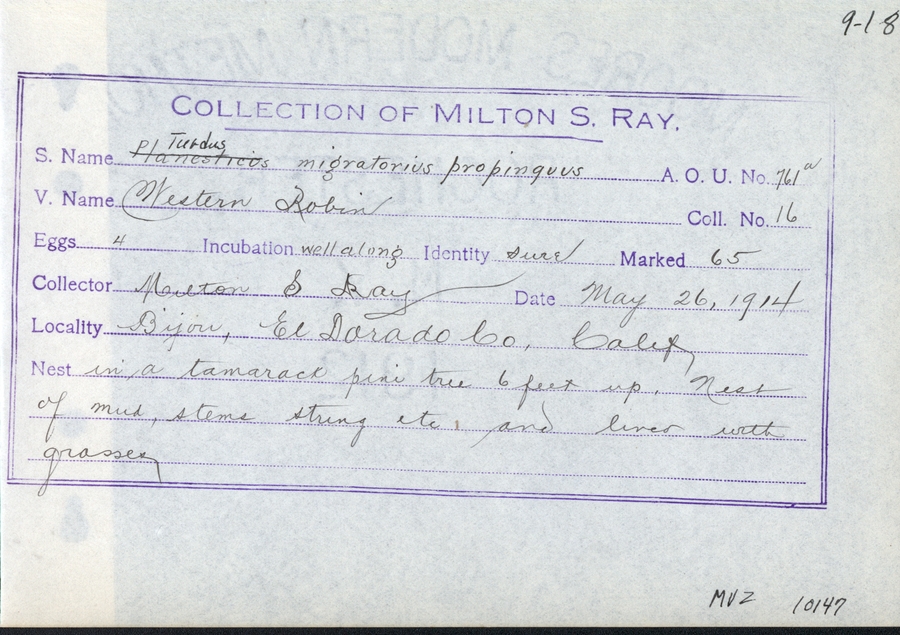 9-18
COLLECTION OF MILTON S. RAY.
Turdus
S. Name Planesticus migratorius propinquus A. O. U. No. 761a
V. Name Western Robin Coll. No. 16
Eggs 4 Incubation well along Identity sure Marked 65
Collector Milton S Ray Date May 26, 1914
Locality Bijou, El Dorado Co, Calif
Nest in a tamarack pine tree 6 feet up. Nest
of mud, stems string etc, and lined with
grasses
MVZ 10147